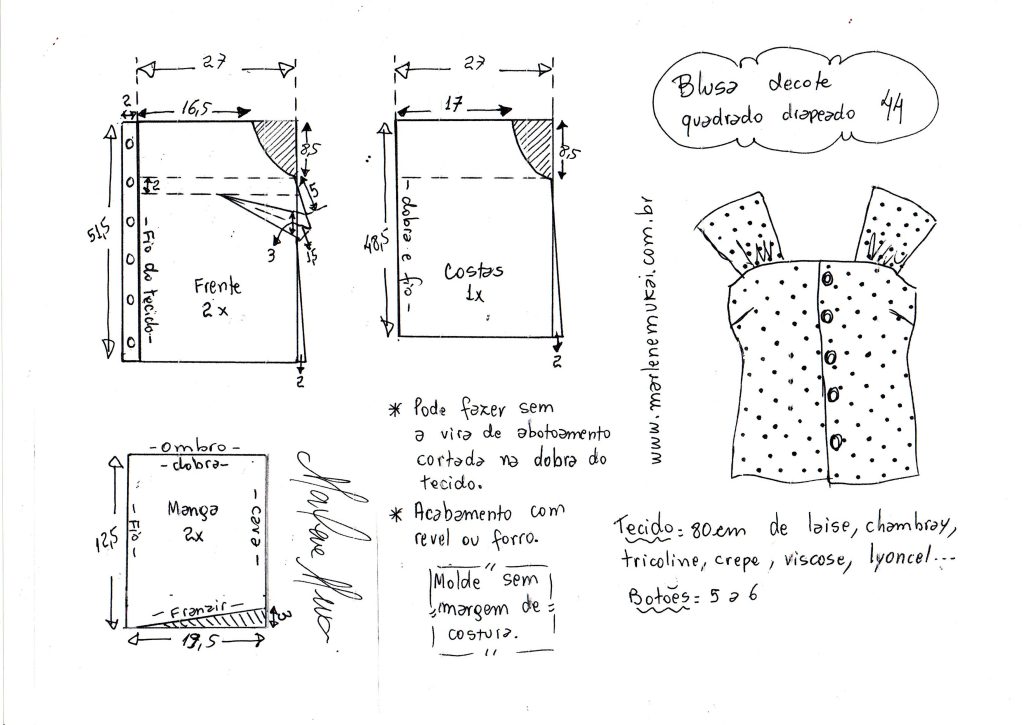 27
2
16,5
8,5
51,5
2
5
3
1,5
- Fio do tecido -
Frente
2x
2
27
17
8,5
48,5
- dobra e fio -
Costas
1x
2
Blusa decote
quadrado drapeado 44
www.marlenemukai.com.br
* Pode fazer sem
a vira de abotoamento
cortada na dobra do
tecido.
* Acabamento com
revel ou forro.
Molde sem
margem de
costura.
- ombro -
- dobra -
Manga
2x
12,5
- Fio -
- cava -
- Franzir -
3
19,5
Tecido = 80cm de laise, chambray,
tricoline, crepe, viscose, lyoncel...
Botões = 5 a 6